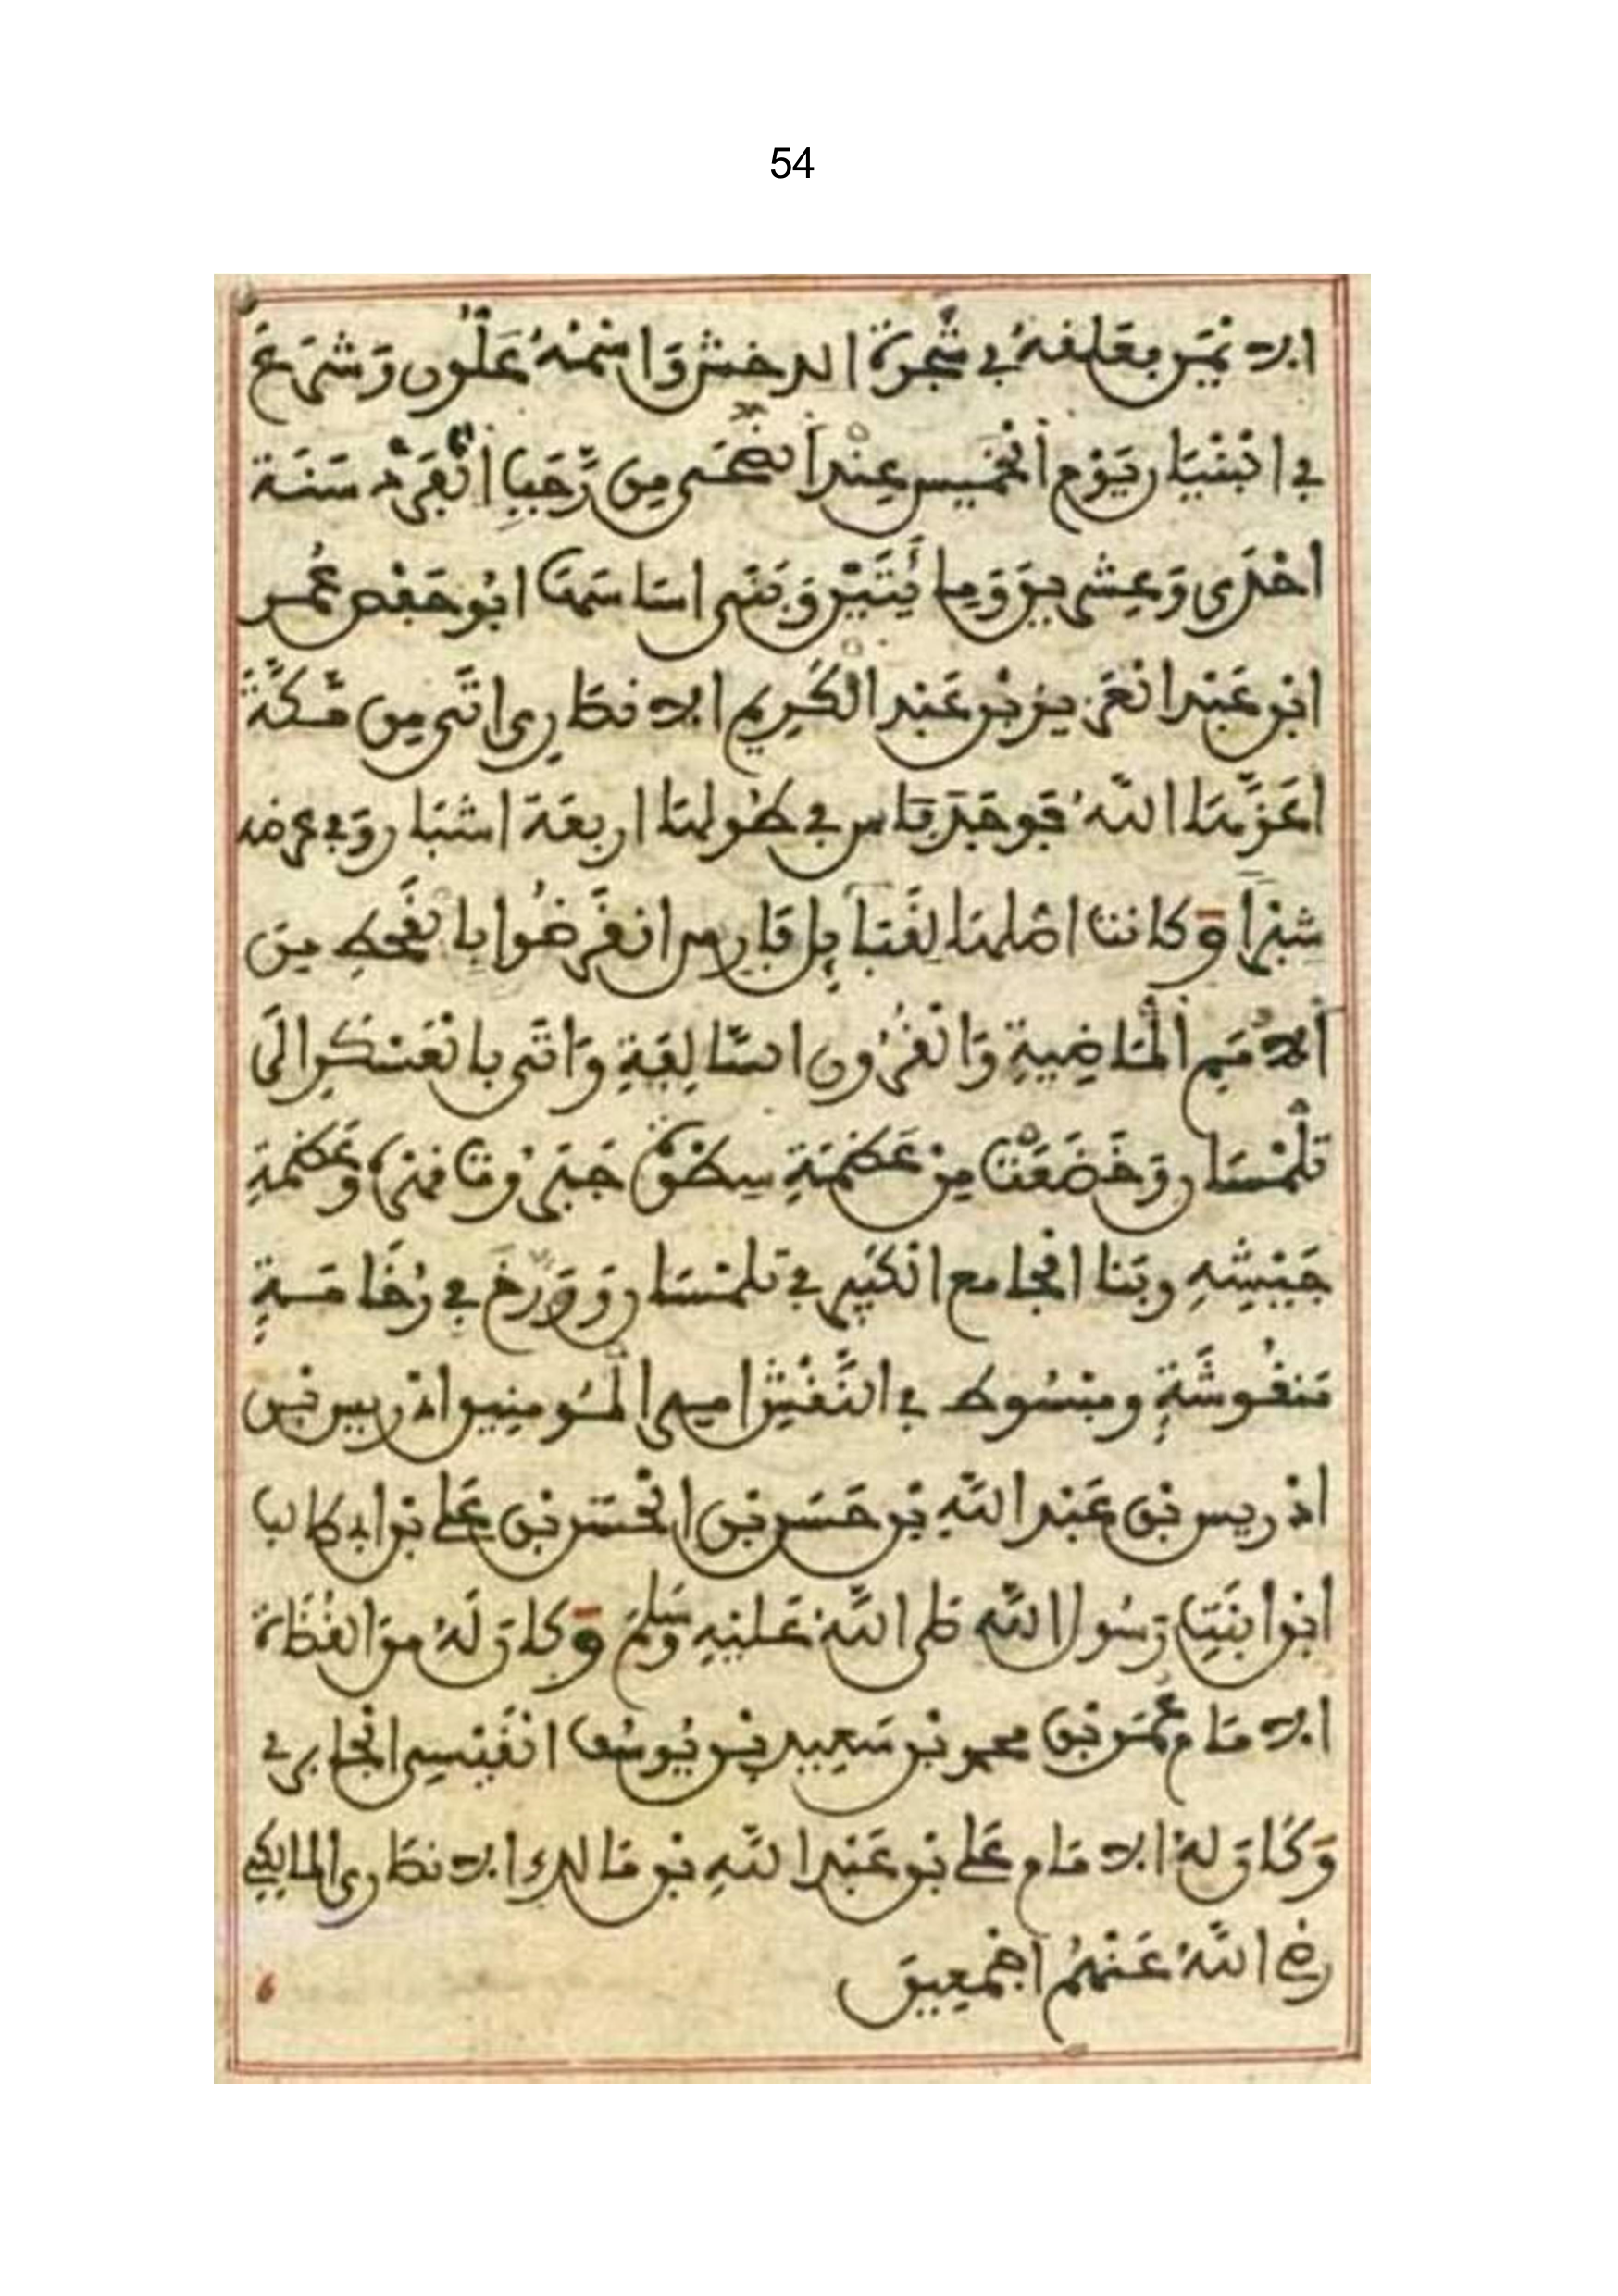 54
الايمن بعلفه في شجرة الدخش واسمه علون وشرع
في انبنيار يوم الخميس عند الضحى من رجب الفرد سنة
احدى وعشرين ومايتين وبنى اساسها ابو حفص عمر
ابن عبد العزيز بن عبد الكريم الانصاري اتى من مكة
اعزها الله فوجد فاس في طولها اربعة اشبار وفي عرضه
شبرا وكانت اصلها لفتا بل فارس انقرضوا بالقحط من
الامم الماضية والقرون السالفة واتى بالعسكر الى
تلمسان وخضعت من عظمة سطوة جبروت فهره وعظمة
جيشه وبنا الجامع الكبير في تلمسان وورخ في رخامة
منقوشة ومبسوط في النقش امير المومنين ادريس بن
ادريس بن عبد الله بن حسن بن الحسن بن علي بن ابي طالب
ابن ابنت رسول الله صلى الله عليه وسلم وكان له من القضاة
الامام عمر بن محمد بن سعيد بن يوسف القيسي الجابري
وكان له الامام علي بن عبد الله بن مالك الانصاري المالكي
رضي الله عنهم اجمعين
6